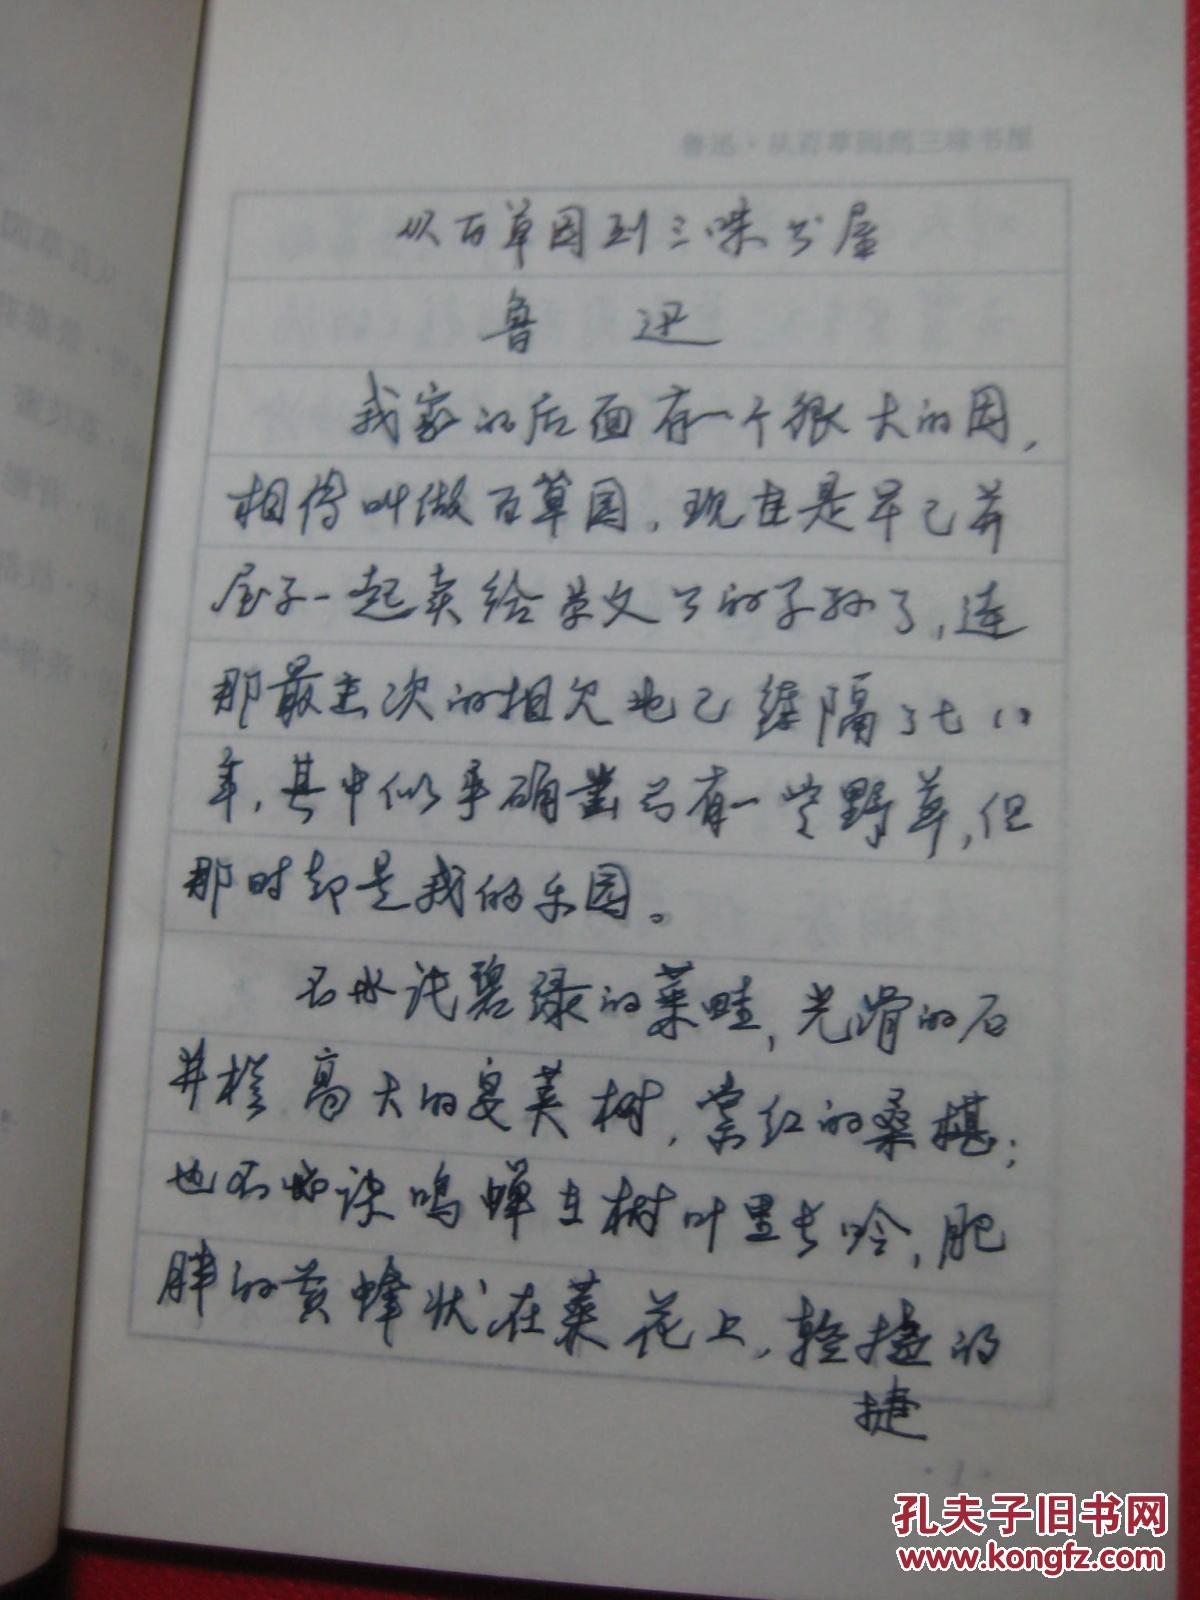 鲁迅·从百草园到三味书屋
从百草园到三味书屋
鲁 迅
我家的后面有一个很大的园，
相传叫做百草园。现在是早已并
屋子一起卖给朱文公的子孙了，连
那最末次的相见也已经隔了七八
年，其中似乎确凿只有一些野草，但
那时却是我的乐园。
不必说碧绿的菜畦，光滑的石
井栏 高大的皂荚树，紫红的桑椹；
也不必说鸣蝉在树叶里长吟，肥
胖的黄蜂伏在菜花上，轻捷的
捷
·1·
孔夫子旧书网
www.kongfz.com